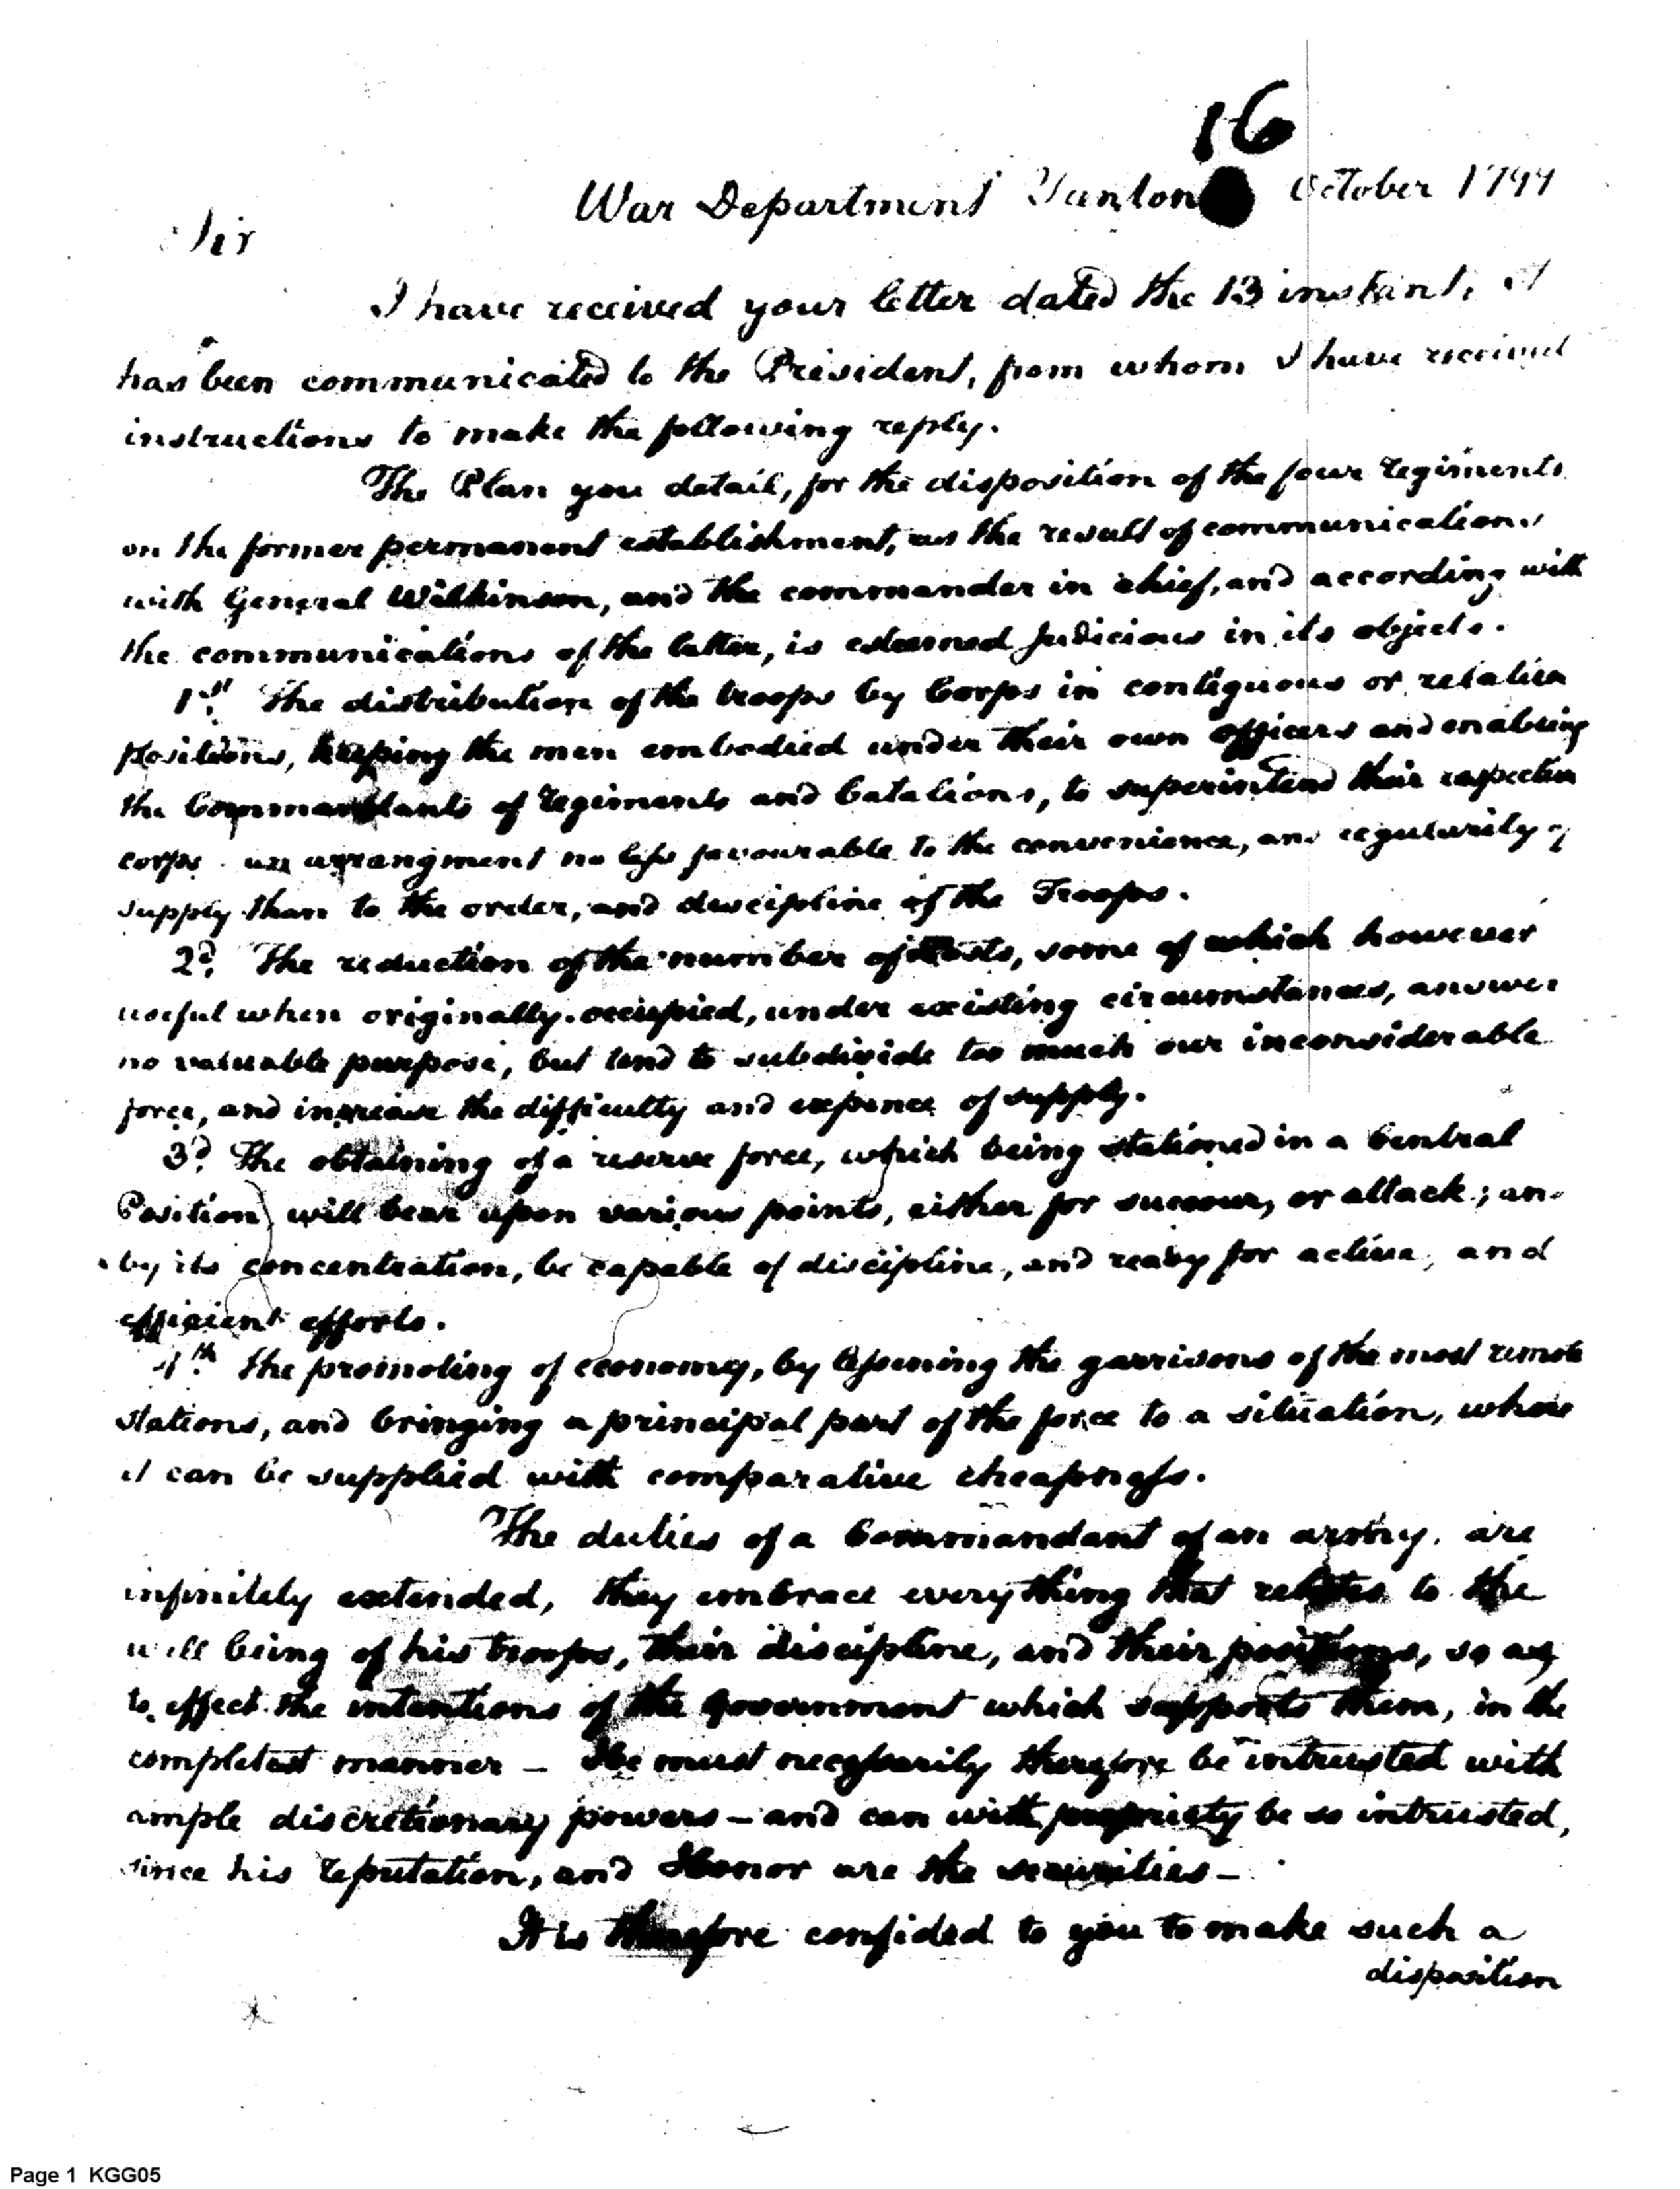 16
War Department Trenton October 1799
Sir
I have received your letter dated the 13 instant, it
has been communicated to the President, from whom I have received
instructions to make the following reply.
The Plan you detail, for the disposition of the four regiments
on the former permanent establishment, as the result of communications
with General Wilkinson, and the commander in chief, and according with
the communications of the latter, is esteemed Judicious in its objects.
1st. The distribution of the troops by Corps in contiguous or relative
positions, keeping the men embodied under their own officers and enabling
the Commandants of regiments and batalions, to superintend their respective
corps an arrangment no less favourable to the convenience, and regularity of
supply than to the order, and discipline of the Troops.
2d. The reduction of the number of Posts, some of which however
useful when originally occupied, under existing circumstances, answer
no valuable purpose, but tend to subdivide too much our inconsiderable
force, and increase the difficulty and expence of supply.
3d. The obtaining of a reserve force, which being stationed in a Central
Position, will bear upon various points, either for succour, or attack; and
by its concentration, be capable of discipline, and ready for active, and
efficient efforts.
4th. the promoting of economy, by lessening the garrisons of the most remote
stations, and bringing a principal part of the force to a situation, where
it can be supplied with comparative cheapness.
The duties of a Commandant of an army, are
infinitely extended, they embrace every thing that relates to the
well being of his troops, their discipline, and their positions, so as
to effect the intentions of the Government which supports them, in the
completest manner — He must necessarily therefore be intrusted with
ample discretionary powers — and can with propriety be so intrusted,
since his reputation, and Honor are the securities —
It is therefore confided to you to make such a
disposition
Page 1 KGG05